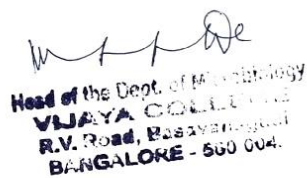 Head of the Dept. of Microbiology
VIJAYA COLLEGE
R.V. Road, Basavanagudi
BANGALORE - 560 004.